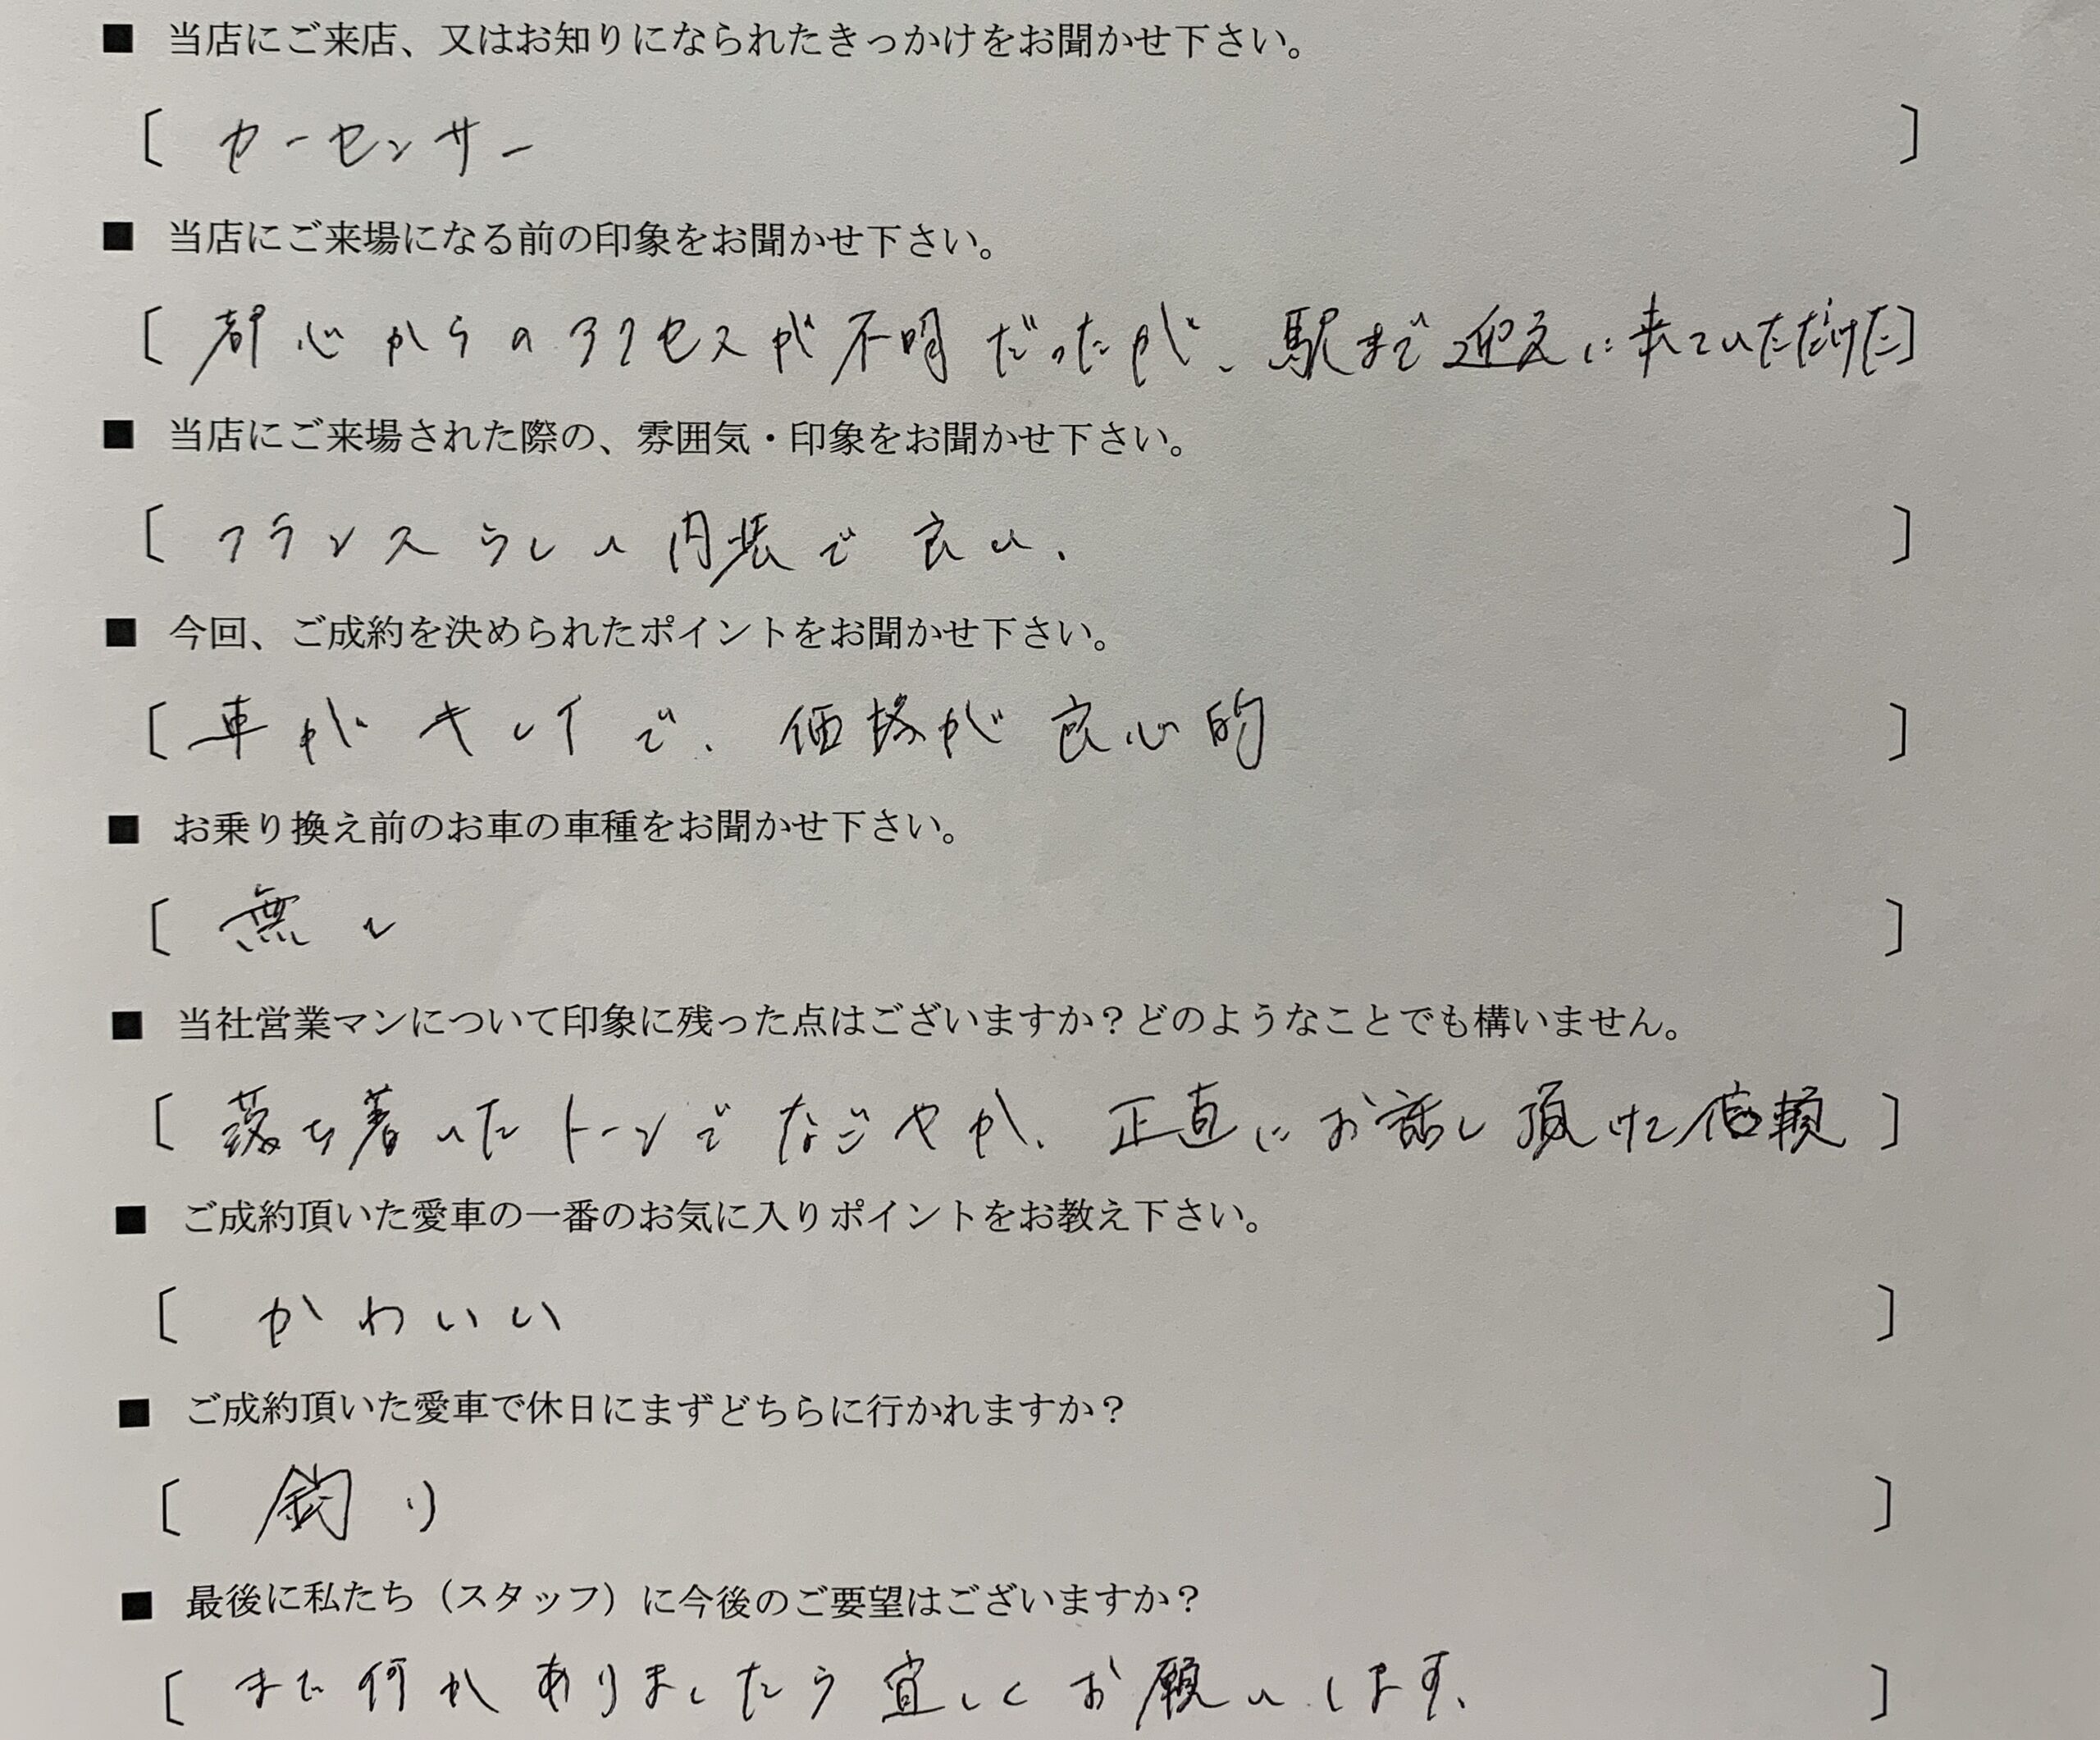 ■ 当店にご来店、又はお知りになられたきっかけをお聞かせ下さい。
〔 カーセンサー 〕
■ 当店にご来場になる前の印象をお聞かせ下さい。
〔 都心からのアクセスが不明だったが、駅まで迎えに来ていただけた 〕
■ 当店にご来場された際の、雰囲気・印象をお聞かせ下さい。
〔 フランスらしい内装で良い。 〕
■ 今回、ご成約を決められたポイントをお聞かせ下さい。
〔 車がキレイで、価格が良心的 〕
■ お乗り換え前のお車の車種をお聞かせ下さい。
〔 無し 〕
■ 当社営業マンについて印象に残った点はございますか？どのようなことでも構いません。
〔 落ち着いたトーンでなごやか、正直にお話し頂けて信頼 〕
■ ご成約頂いた愛車の一番のお気に入りポイントをお教え下さい。
〔 かわいい 〕
■ ご成約頂いた愛車で休日にまずどちらに行かれますか？
〔 釣り 〕
■ 最後に私たち（スタッフ）に今後のご要望はございますか？
〔 また何かありましたら宜しくお願いします。 〕